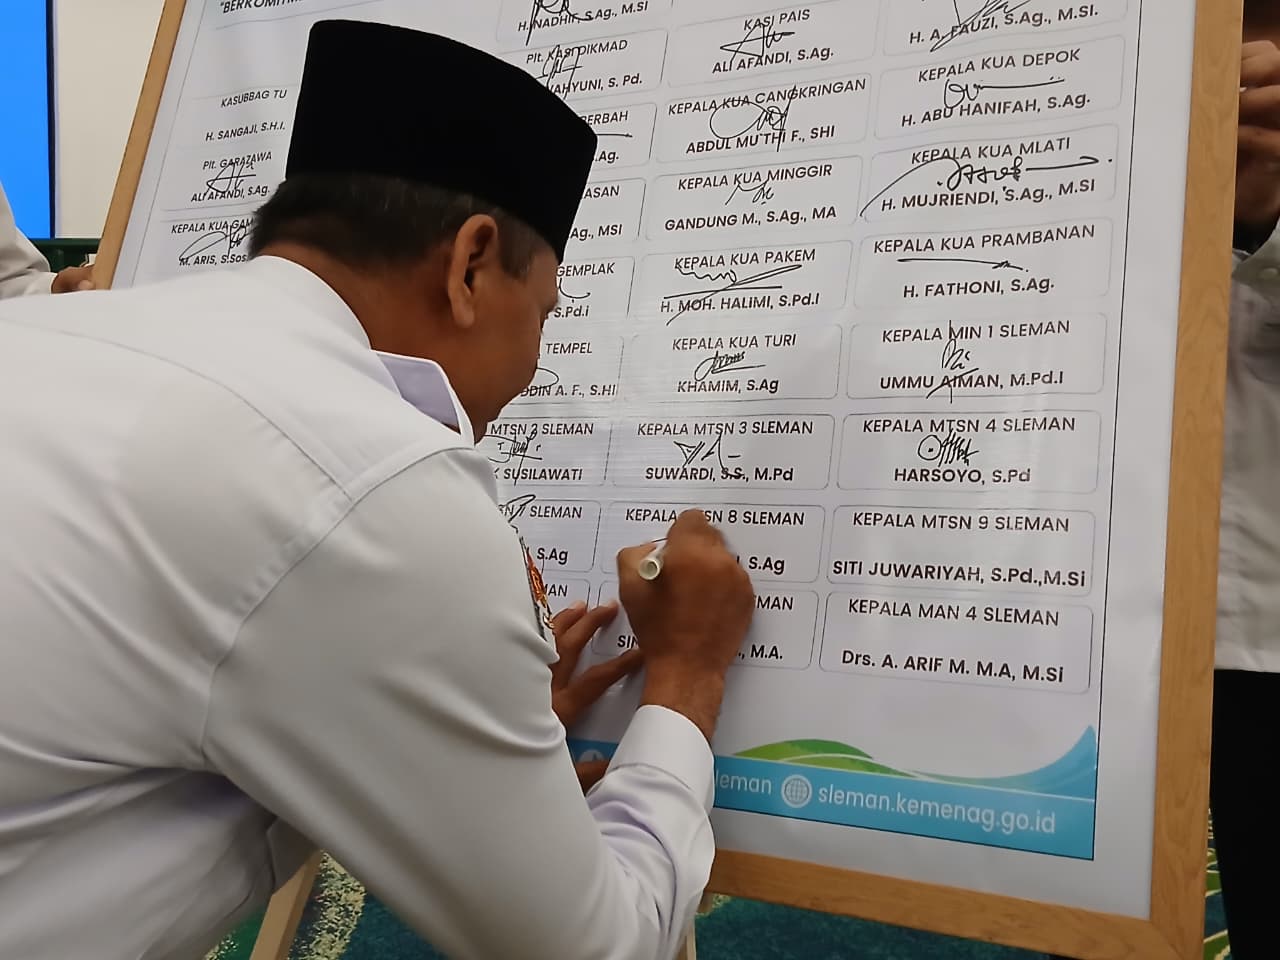 "BERKOMITM
H. NADHIF, S.Ag., M.SI
H. A. FAUZI, S.Ag., M.SI.
KASI PAIS
ALI AFANDI, S.Ag.
Plt. KASI DIKMAD
AHYUNI, S. Pd.
KASUBBAG TU
H. SANGAJI, S.H.I.
KEPALA KUA DEPOK
H. ABU HANIFAH, S.Ag.
KEPALA KUA CANGKRINGAN
ABDUL MU'THI F., SHI
BERBAH
.Ag.
Plt. GARAZAWA
ALI AFANDI, S.Ag.
KEPALA KUA MLATI
H. MUJRIENDI, S.Ag., M.SI
KEPALA KUA MINGGIR
GANDUNG M., S.Ag., MA
ASAN
Ag., MSI
KEPALA KUA GAM
M. ARIS, S.Sos
KEPALA KUA PRAMBANAN
H. FATHONI, S.Ag.
KEPALA KUA PAKEM
H. MOH. HALIMI, S.Pd.I
GEMPLAK
S.Pd.i
KEPALA MIN 1 SLEMAN
UMMU AIMAN, M.Pd.I
KEPALA KUA TURI
KHAMIM, S.Ag
TEMPEL
DDIN A. F., S.HI
MTSN 2 SLEMAN
K SUSILAWATI
KEPALA MTSN 3 SLEMAN
SUWARDI, S.S., M.Pd
KEPALA MTSN 4 SLEMAN
HARSOYO, S.Pd
SN 7 SLEMAN
S.Ag
KEPALA MTSN 8 SLEMAN
I, S.Ag
KEPALA MTSN 9 SLEMAN
SITI JUWARIYAH, S.Pd.,M.Si
MAN
MAN
SIN
., M.A.
KEPALA MAN 4 SLEMAN
Drs. A. ARIF M. M.A, M.Si
leman
sleman.kemenag.go.id